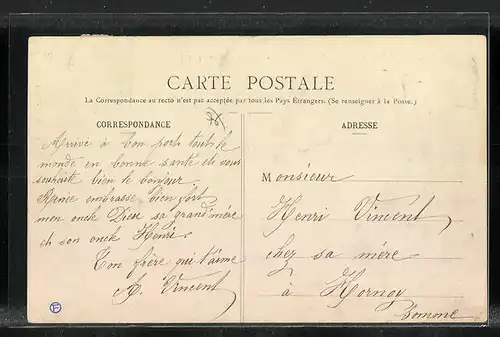 CARTE POSTALE
La Correspondance au recto n'est pas acceptée par tous les Pays Etrangers. (Se renseigner à la Poste.)
CORRESPONDANCE
Arrivé à bon port tout le
monde en bonne santé et vous
souhaite bien le bonjour
embrasse bien fort
mon oncle sa grand'mère
et son oncle Henri.
Ton frère qui t'aime
A. Vincent
ADRESSE
Monsieur
Henri Vincent
chez sa mère
à Hornoy
Somme